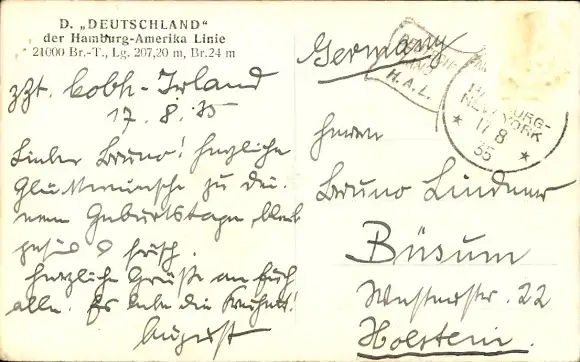 D. „DEUTSCHLAND"
der Hamburg-Amerika Linie
21000 Br.-T., Lg. 207,20 m, Br. 24 m
zZt. Cobh-Irland
17.8.35
Lieber Bruno! Herzliche
Glückwünsche zu Dei-
nem Geburtstage, bleib
gesund & frisch.
Herzliche Grüße an Euch
alle. Es lebe die Freiheit!
August
Germany
H.A.L.
HAMBURG-
NEW YORK
17 8
35
Herrn
Bruno Lindener
Büsum
22
Holstein.